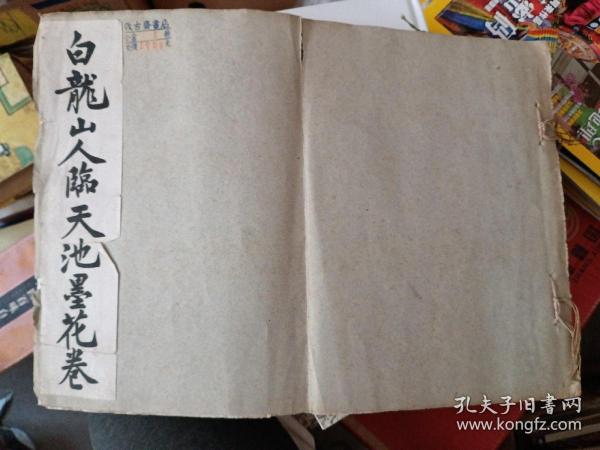 白龍山人臨天池墨花卷
孔夫子旧書网
www.kongfz.com